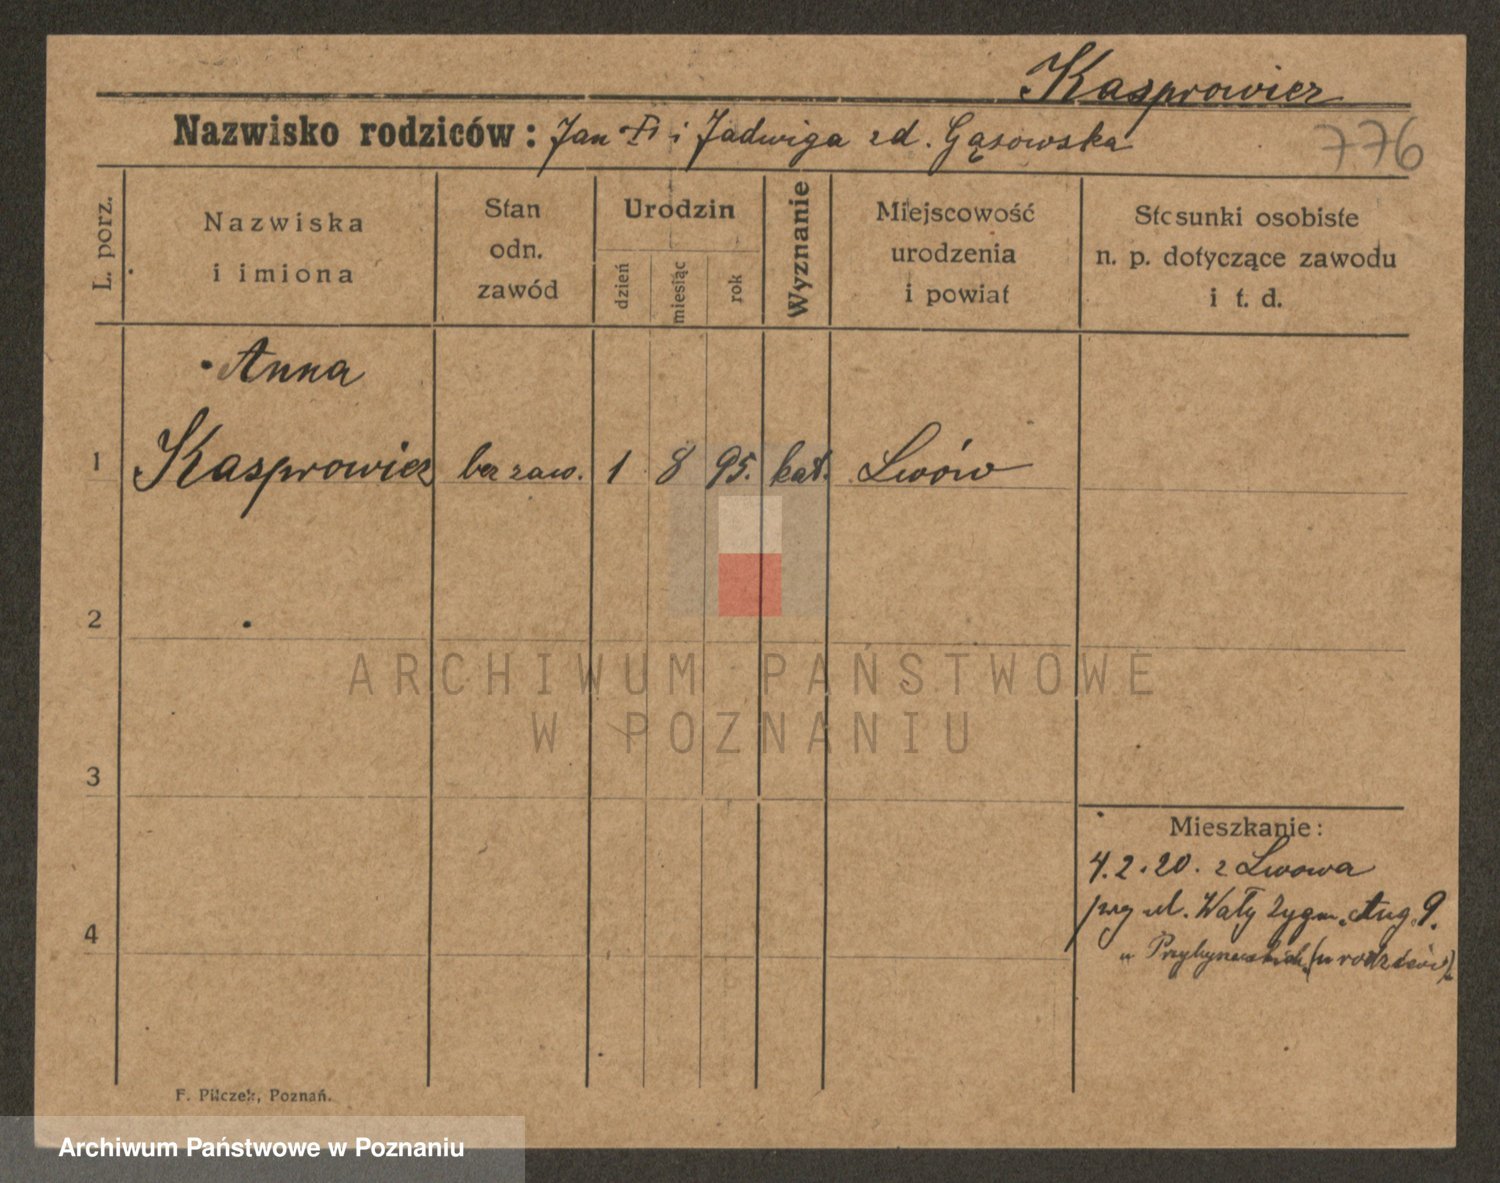 Kasprowicz
776
Nazwisko rodziców: Jan i Jadwiga zd. Gąsowska
L. porz.
Nazwiska
i imiona
Stan
odn.
zawód
Urodzin
dzień
miesiąc
rok
Wyznanie
Miejscowość
urodzenia
i powiat
Stosunki osobiste
n. p. dotyczące zawodu
i t. d.
Anna
1 Kasprowicz bez zaw. 1 8 95. kat. Lwów
2
ARCHIWUM PAŃSTWOWE
W POZNANIU
3
Mieszkanie:
4.2.20. z Lwowa
przy ul. Wały Zygm. Aug. 9.
4
u (u rodziców)
F. Pilczek, Poznań.
Archiwum Państwowe w Poznaniu